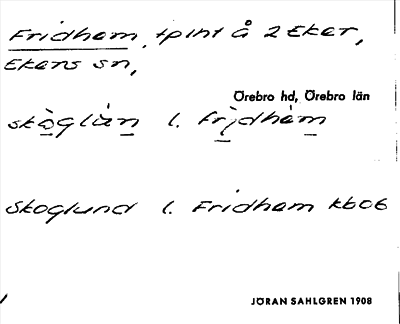 Fridhem, tpint å 2 Eker,
Ekers sn,
Örebro hd, Örebro län
l.
Skoglund l. Fridhem kb06
JÖRAN SAHLGREN 1908